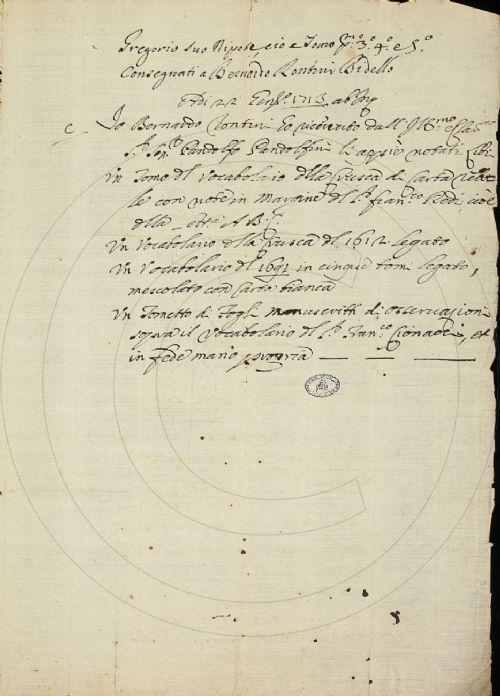 Gregorio suo Nipote, cioè Tomo p.mo 3.º 4.º e 5.º
Consegnati a Bernardo Rontini Bidello
Adi 22 1713. ab
Io Bernardo Rontini ho ricevuto dall' Ill.mo e
S.r Sen.re Pandolfo Pandolfini li appiè notati
Un Tomo del Vocabolario della Crusca di Carta
le con note in margine del S.r Fran.co Redi, cioè
della A B
Un Vocabolario della Crusca del 1612 legato
Un Vocabolario del 1691 in cinque tomi legato,
mescolato con Carta bianca
Un Tometto di fogli manuscritti di osservazioni
sopra il Vocabolario del S.r Fran.co Cionacci, et
in fede mano propria